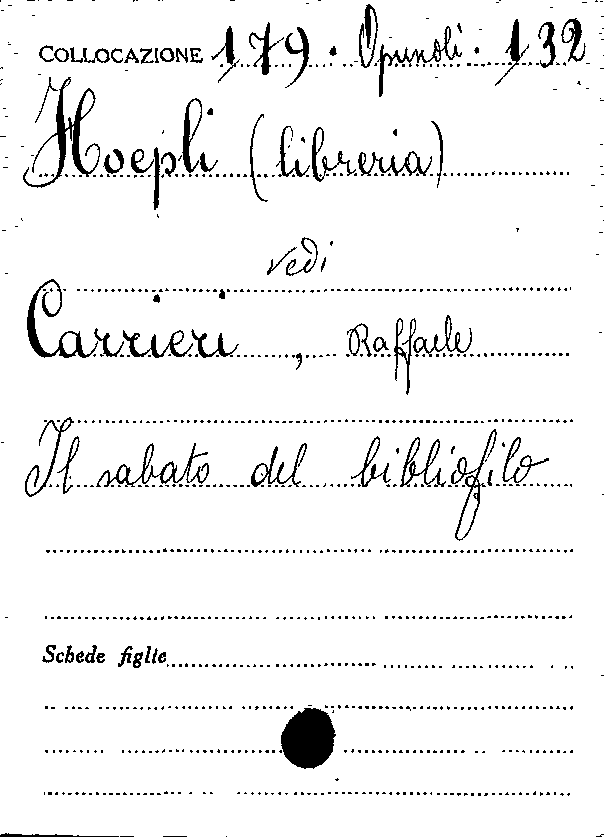 COLLOCAZIONE 179. Opuscoli. 132
Hoepli (libreria)
vedi
Carrieri, Raffaele
Il sabato del bibliofilo
Schede figlie